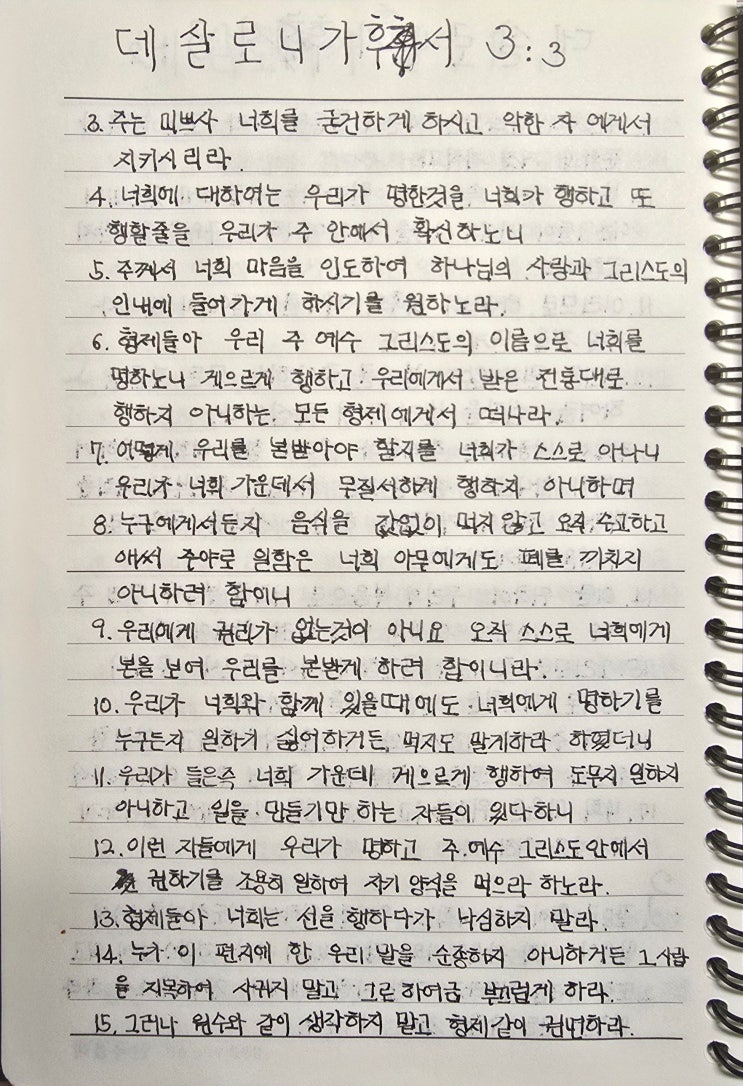 데살로니가후서 3:3
3. 주는 미쁘사 너희를 굳건하게 하시고 악한 자 에게서
지키시리라.
4. 너희에 대하여는 우리가 명한것을 너희가 행하고 또
행할줄을 우리가 주 안에서 확신하노니
5. 주께서 너희 마음을 인도하여 하나님의 사랑과 그리스도의
인내에 들어가게 하시기를 원하노라.
6. 형제들아 우리 주 예수 그리스도의 이름으로 너희를
명하노니 게으르게 행하고 우리에게서 받은 전통대로
행하지 아니하는 모든 형제에게서 떠나라.
7. 어떻게 우리를 본받아야 할지를 너희가 스스로 아나니
우리가 너희 가운데서 무질서하게 행하지 아니하며
8. 누구에게서든지 음식을 값없이 먹지 않고 오직 수고하고
애써 주야로 일함은 너희 아무에게도 폐를 끼치지
아니하려 함이니
9. 우리에게 권리가 없는것이 아니요 오직 스스로 너희에게
본을 보여 우리를 본받게 하려 함이니라.
10. 우리가 너희와 함께 있을때에도 너희에게 명하기를
누구든지 일하기 싫어하거든 먹지도 말게하라 하였더니
11. 우리가 들은즉 너희 가운데 게으르게 행하여 도무지 일하지
아니하고 일을 만들기만 하는 자들이 있다하니
12. 이런 자들에게 우리가 명하고 주 예수 그리스도안에서
권하기를 조용히 일하여 자기 양식을 먹으라 하노라.
13. 형제들아 너희는 선을 행하다가 낙심하지 말라.
14. 누가 이 편지에 한 우리 말을 순종하지 아니하거든 그사람
을 지목하여 사귀지 말고 그로 하여금 부끄럽게 하라.
15. 그러나 원수와 같이 생각하지 말고 형제같이 권면하라.